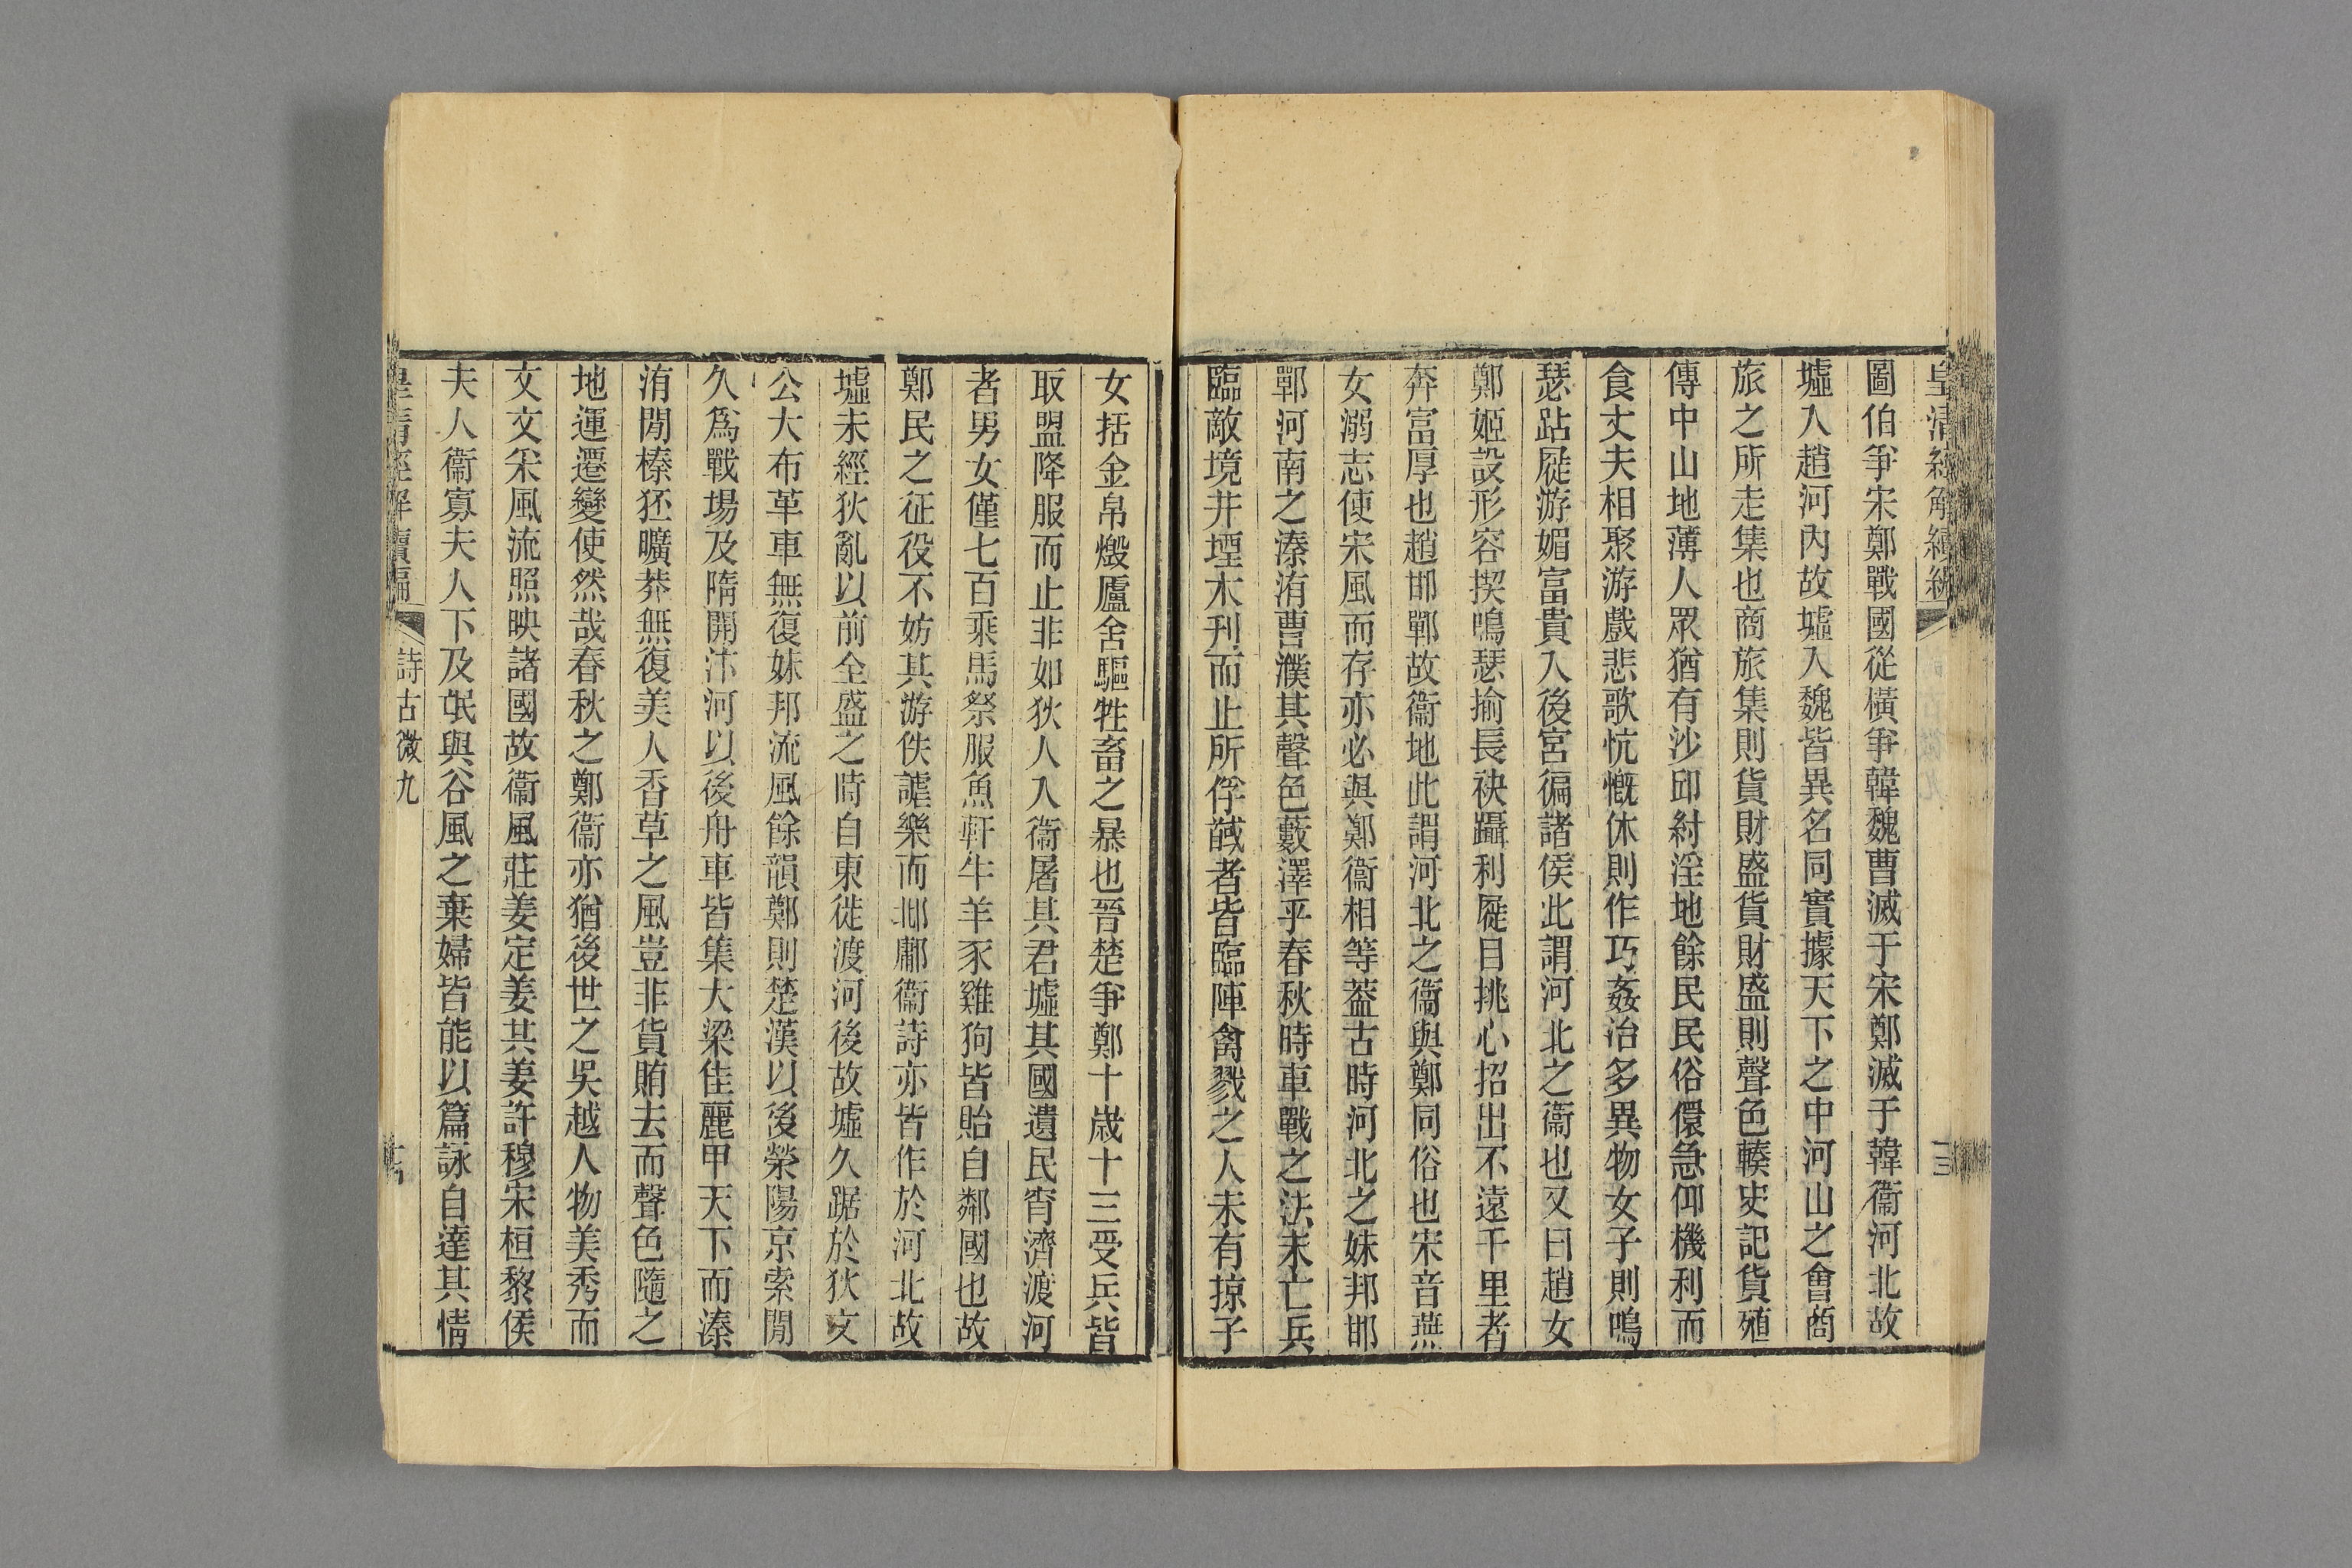 皇清經解續編
圖伯爭宋鄭戰國從橫爭韓魏曹滅于宋鄭滅于韓衞河北故
墟入趙河內故墟入魏皆異名同實據天下之中河山之會商
旅之所走集也商旅集則貨財盛貨財盛則聲色輳史記貨殖
傳中山地薄人眾猶有沙邱紂淫地餘民民俗儇急仰機利而
食丈夫相聚游戲悲歌忼慨休則作巧姦冶多異物女子則鳴
瑟跕屣游媚富貴入後宮徧諸侯此謂河北之衞也又曰趙女
鄭姬設形容揳鳴瑟揄長袂躡利屣目挑心招出不遠千里者
奔富厚也趙邯鄲故衞地此謂河北之衞與鄭同俗也宋音燕
女溺志使宋風而存亦必與鄭衞相等葢古時河北之妹邦邯
鄲河南之溱洧曹濮其聲色藪澤乎春秋時車戰之法未亡兵
臨敵境井堙木刊而止所俘馘者皆臨陣禽戮之人未有掠子
女括金帛燬廬舍驅牲畜之暴也晉楚爭鄭十歲十三受兵皆
取盟降服而止非如狄人入衞屠其君墟其國遺民宵濟渡河
者男女僅七百乘馬祭服魚軒牛羊豕雞狗皆貽自鄰國也故
鄭民之征役不妨其游佚謔樂而邶鄘衞詩亦皆作於河北故
墟未經狄亂以前全盛之時自東徙渡河後故墟久踞於狄文
公大布革車無復妹邦流風餘韻鄭則楚漢以後滎陽京索閒
久爲戰場及隋開汴河以後舟車皆集大梁佳麗甲天下而溱
洧閒榛狉曠莽無復美人香草之風豈非貨賄去而聲色隨之
地運遷變使然哉春秋之鄭衞亦猶後世之吳越人物美秀而
文文采風流照映諸國故衞風莊姜定姜共姜許穆宋桓黎侯
夫人衞寡夫人下及氓與谷風之棄婦皆能以篇詠自達其情
皇清經解續編 詩古微九